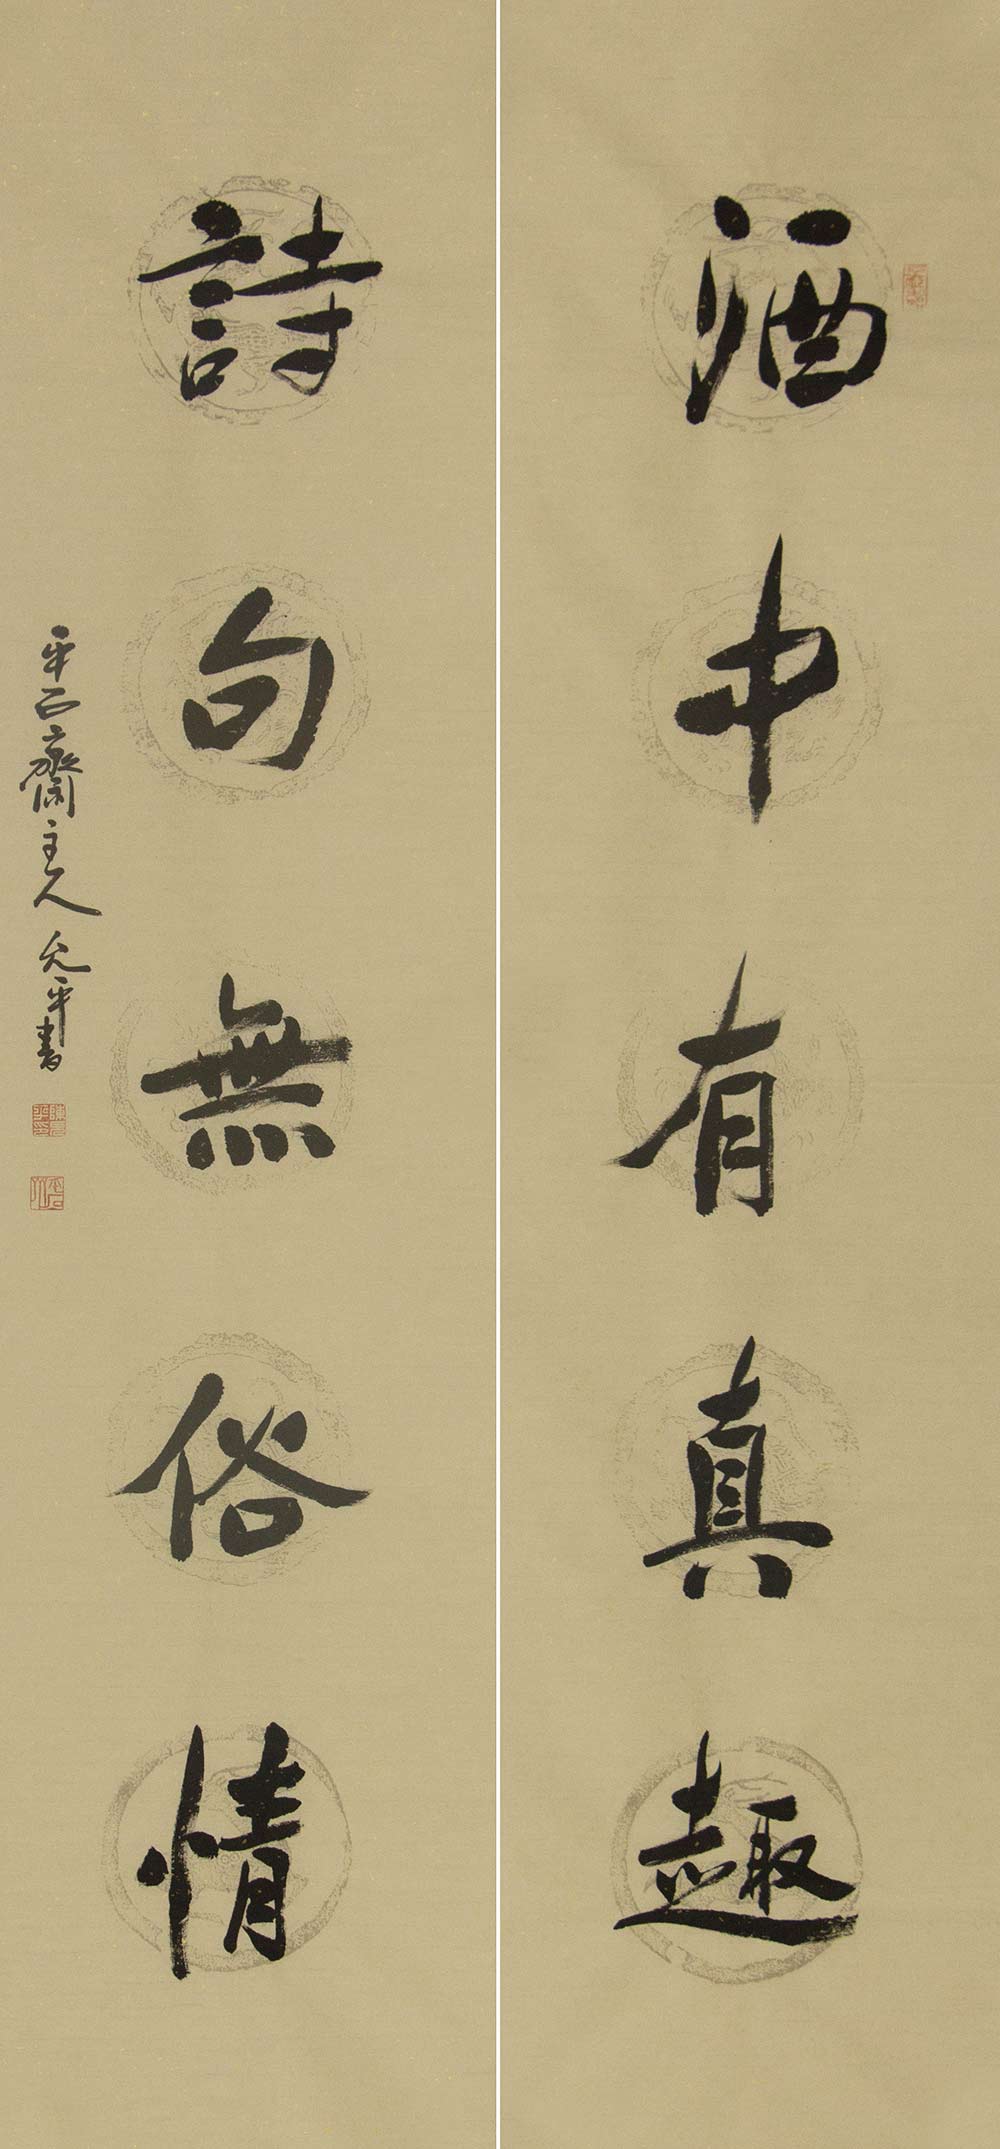 酒中有真趣
詩句無俗情
平石齋主人 允平書